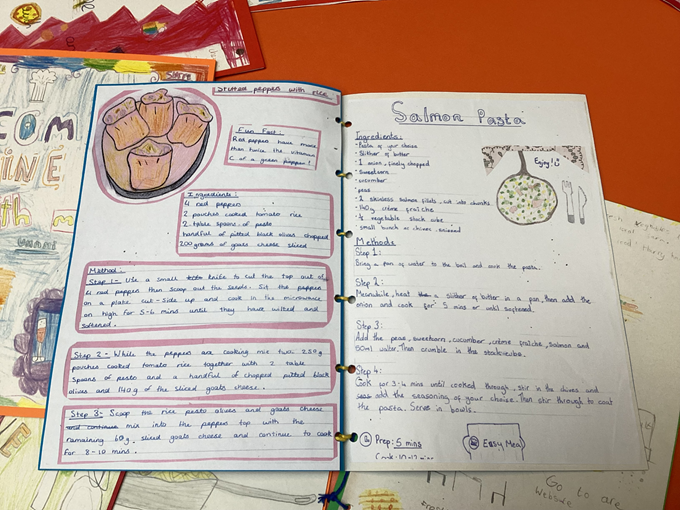 Stuffed peppers with rice
Fun Fact:
Red peppers have more
than twice the vitamin
C of a green pepper!
Ingredients:
4 red peppers
2 pouches cooked tomato rice
2 table spoons of pesto
handful of pitted black olives chopped
200 grams of goats cheese sliced
Method:
Step 1- Use a small knife to cut the top out of
4 red peppers then scoop out the seeds. Sit the peppers
on a plate cut-side up and cook in the microwave
on high for 5-6 mins until they have wilted and
softened.
Step 2- While the peppers are cooking mix two 250g
pouches cooked tomato rice together with 2 table
spoons of pesto and a handful of chopped pitted black
olives and 140g of the sliced goats cheese.
Step 3- Scoop tha rice pesto olives and goats cheese
and continue mix into the peppers top with the
remaining 60g sliced goats cheese and continue to cook
for 8-10 mins.
Salmon Pasta
Ingredients:
· Pasta of your choice
· Slither of butter
· 1 onion, finely chopped
· Sweetcorn
· cucumber
· peas
· 2 skinless salmon fillets, cut into chunks
· 140g crème fraîche
· ½ vegetable stock cube
· small bunch of chives, snipped
Enjoy!
Methods
Step 1:
Bring a pan of water to the boil and cook the pasta.
Step 2:
Meanwhile, heat a slither of butter in a pan, then add the
onion and cook for 5 mins or until softened.
Step 3:
Add the peas, sweetcorn, cucumber, crème fraîche, salmon and
50ml water. Then crumble in the stock cube.
Step 4:
Cook for 3-4 mins until cooked through, stir in the chives and
add the seasoning of your choice. Then stir through to coat
the pasta. Serve in bowls.
Prep: 5 mins
Easy Meal
Go to are
Website